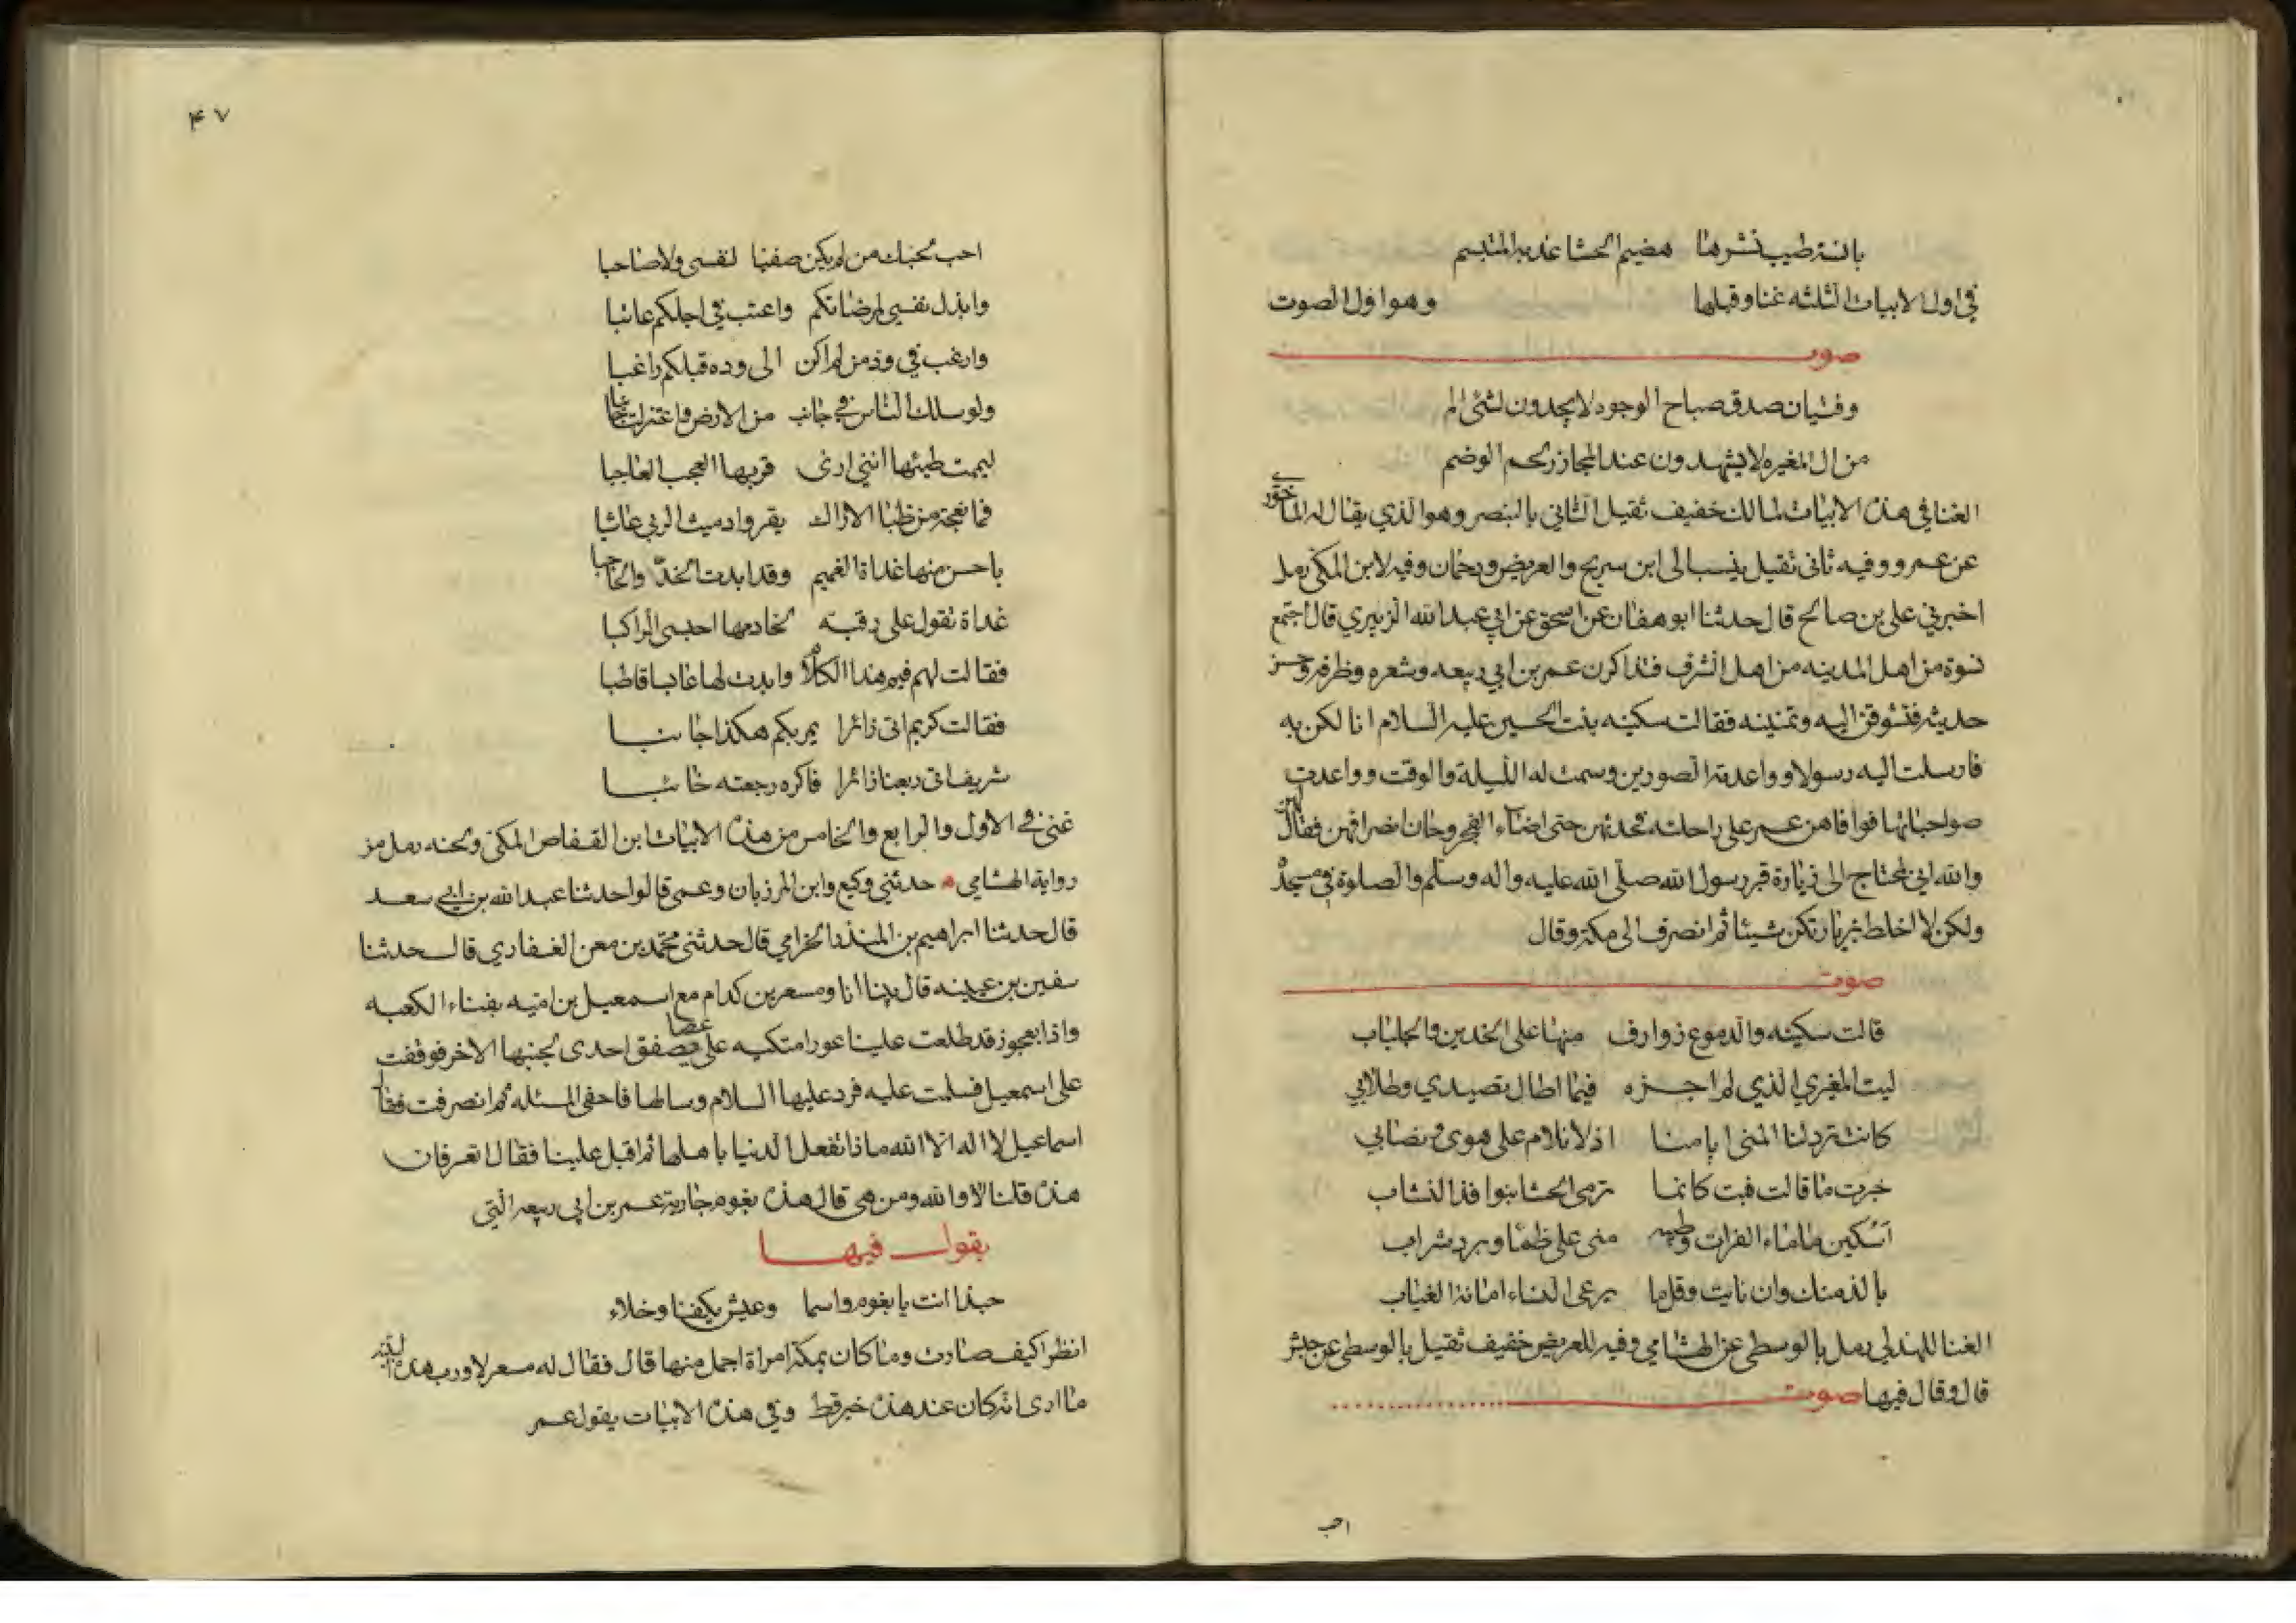 بانسة طيب نشرها هضيم الحشا عذبه المتبسم
في اول الابيات الثلثه غنا وقبلها وهو اول الصوت
صوت
وفتيان صدق صباح الوجوه لا يجدون لشئ الم
من ال المغيره لا يشهدون عند المجازر لحم الوضم
الغنا في هذه الابيات لمالك خفيف ثقيل الثاني بالبنصر وهو الذي يقال له الماخوري
عن عمرو وفيه ثاني ثقيل ينسب الى ابن سريج والغريض ودحمان وفيه لابن المكي رمل
اخبرني علي بن صالح قال حدثنا ابو هفان عن اسحق عن ابي عبدالله الزبيري قال اجتمع
نسوة من اهل المدينه من اهل الشرف فتذاكرن عمر بن ابي ربيعه وشعره وظرفه وحسن
حديثه فتشوقن اليه وتمنينه فقالت سكينه بنت الحسين عليه السلام انا لكن به
فارسلت اليه رسولا وواعدته الصورين وسمت له الليلة والوقت وواعدت
صواحباتها فوافاهن عمر على راحلته فحدثهن حتى اضاء الفجر وحان انصرافهن فقال لهن
والله اني لمحتاج الى زيارة قبر رسول الله صلى الله عليه واله وسلم والصلوة في مسجده
ولكن لا اخلط بزيارتكن شيئا ثم انصرف الى مكة وقال
صوت
قالت سكينه والدموع ذوارف منها على الخدين والجلباب
ليت المغيري الذي لم اجزه فيما اطال تصيدي وطلابي
كانت ترد لنا المنى ايامنا اذ لا نلام على هوى وتصابي
خبرت ما قالت فبت كانما ترمى الحشا بنوافذ النشاب
اسكين ما ماء الفرات وطيبه منى على ظمأ وبرد شراب
بالذ منك وان نايت وقلما يرعى النساء امانة الغياب
الغنا للهذلي رمل بالوسطى عن الهشامي وفيه للغريض خفيف ثقيل بالوسطى عن حبش
قال وقال فيها صوت
احب
٤٧
احب لحبك من لم يكن صفيا لنفسى ولا صاحبا
وابذل نفسي لمرضاتكم واعتب في اجلكم عاتبا
وارغب في ود من لم اكن الى وده قبلكم راغبا
ولو سلك الناس في جانب من الارض واعتزلت جانبا
ليممت طيتها انني ارى قربها العجب العاجبا
فما نعجة من ظبا الاراك يقرو ادميث الربى عاشبا
باحسن منها غداة الغميم وقد ابدت الخد والحاجبا
غداة تقول على رقبة لخادمها احبسى الراكبا
فقالت لهم فيم هذا الكلام وابدت لها عابسا قاطبا
فقالت كريم اتى زائرا يمر بكم هكذا جانبا
شريف اتى ربعنا زائرا فاكره رجعته خائبا
غنى في الاول والرابع والخامس من هذه الابيات ابن القفاص المكي ولحنه رمل من
رواية الهشامي حدثني وكيع وابن المرزبان وعمى قالوا حدثنا عبدالله بن ابي سعد
قال حدثنا ابراهيم بن المنذر الخزامي قال حدثنى محمد بن معن الغفاري قال حدثنا
سفين بن عيينه قال بينا انا ومسعر بن كدام مع اسمعيل بن اميه بفناء الكعبه
واذا بعجوز قد طلعت علينا عورا متكيه على عصا يصفق احدى لجنبها الاخر فوقفت
على اسمعيل فسلمت عليه فرد عليها السلام وسالها فاحفى المسئله ثم انصرفت فقال
اسماعيل لا اله الا الله ماذا تفعل الدنيا باهلها ثم اقبل علينا فقال اتعرفان
هذه قلنا لا والله ومن هى قال هذه بغوم جارية عمر بن ابي ربيعه التي
يقول فيها
حبذا انت يا بغوم واسما وعيش يكفنا وخلاء
انظرا كيف صارت وما كان بمكة امراة اجمل منها قال فقال له مسعر لا ورب هذه البنيه
ما ارى انه كان عند هذه خير قط وفي هذه الابيات يقول عمر